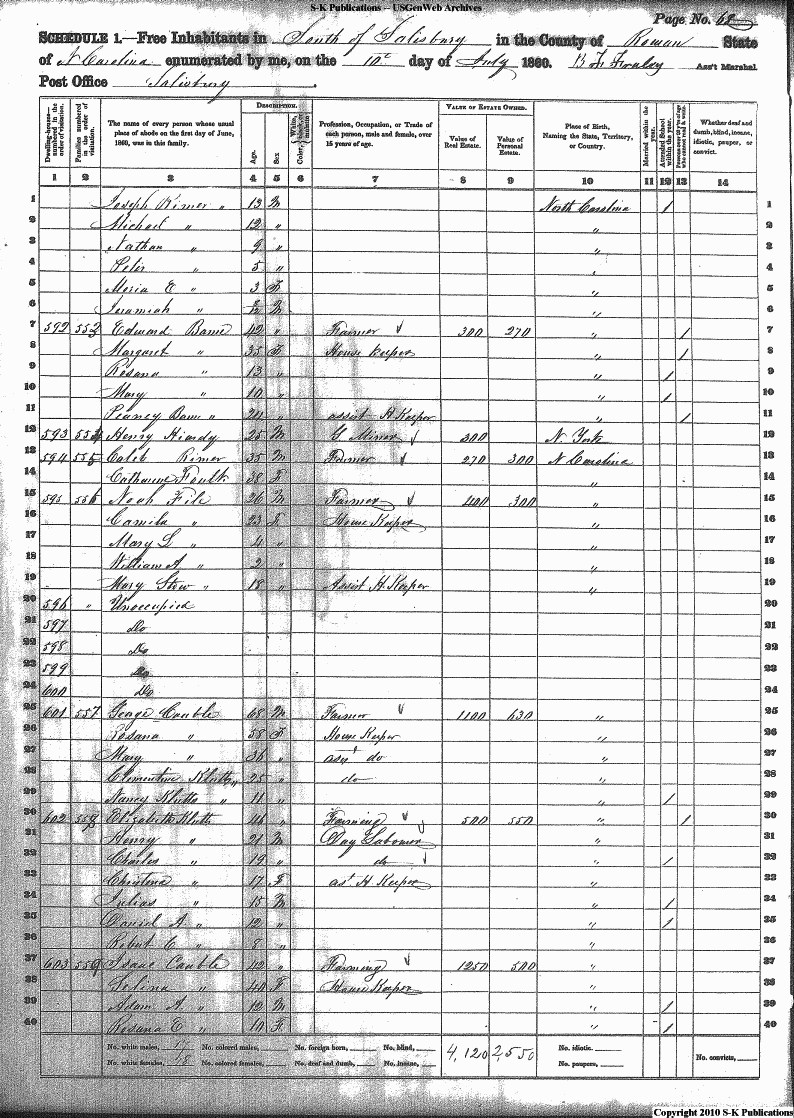 S-K Publications -- USGenWeb Archives
Page No. 68
SCHEDULE 1.—Free Inhabitants in South of Salisbury in the County of Rowan State
of N Carolina enumerated by me, on the 10th day of July 1860. B F Fraley Ass't Marshal
Post Office Salisbury.
Dwelling-houses numbered in the order of visitation.
Families numbered in the order of visitation.
The name of every person whose usual place of abode on the first day of June, 1860, was in this family.
DESCRIPTION.
Age.
Sex
Color,
Profession, Occupation, or Trade of each person, male and female, over 15 years of age.
VALUE OF ESTATE OWNED.
Value of Real Estate.
Value of Personal Estate.
Place of Birth, Naming the State, Territory, or Country.
Married within the year.
Attended School within the year.
Whether deaf and dumb, blind, insane, idiotic, pauper, or convict.
1 2 3 4 5 6 7 8 9 10 11 12 13 14
1 Joseph Rimer " 13 M North Carolina / 1
2 Michael " 12 " " 2
3 Nathan " 9 " " 3
4 Peter " 5 " " 4
5 Maria E " 3 F " 5
6 Jeremiah " M " 6
7 592 552 Edward Bame 42 " Farmer 300 270 " / 7
8 Margaret " 35 F House Keeper " / 8
9 Rosana " 13 " " / 9
10 Mary " 10 " " / 10
11 Bame " " assist H Keeper " / 11
12 593 554 Henry 25 M G Miner 300 N. York 12
13 594 555 Caleb Rimer 35 M Farmer 270 300 N Carolina 13
14 Catharine Foulk 38 F " 14
15 595 556 Noah File 26 M Farmer 400 300 " 15
16 Camila " 23 F House Keeper " 16
17 Mary L " 4 " " 17
18 William A " 2 " 18
19 Mary " 18 " Assist H Keeper " 19
20 596 " Unoccupied 20
21 597 Do 21
22 598 Do 22
23 599 Do 23
24 600 Do 24
25 601 557 George Cauble 68 M Farmer 1100 630 " 25
26 Rosana " 58 F House Keeper " 26
27 Mary " 36 " asst do " 27
28 Clementine Klutts " 25 " do " 28
29 Nancy Klutts " 11 " " / 29
30 602 558 Elizabeth Klutts 46 " Farming 500 550 " / 30
31 Henry " 21 M Day Laborer " 31
32 Charles " 19 " do " / 32
33 Christena " 17 F ast H Keeper " 33
34 Julias " 15 M " / 34
35 Daniel A " 12 " " / 35
36 Robert C " 8 " " 36
37 603 559 Isaac Cauble 42 " Farming 1250 500 " 37
38 Selina " 40 F House Keeper " 38
39 Adam A " 12 M " / 39
40 Rosana E " 10 F " / 40
No. white males, 17 No. colored males, No. foreign born, No. blind, 4,120 2,550 No. idiotic.
No. white females, 18 No. colored females, No. deaf and dumb, No. insane, No. paupers, No. convicts,
Copyright 2010 S-K Publications